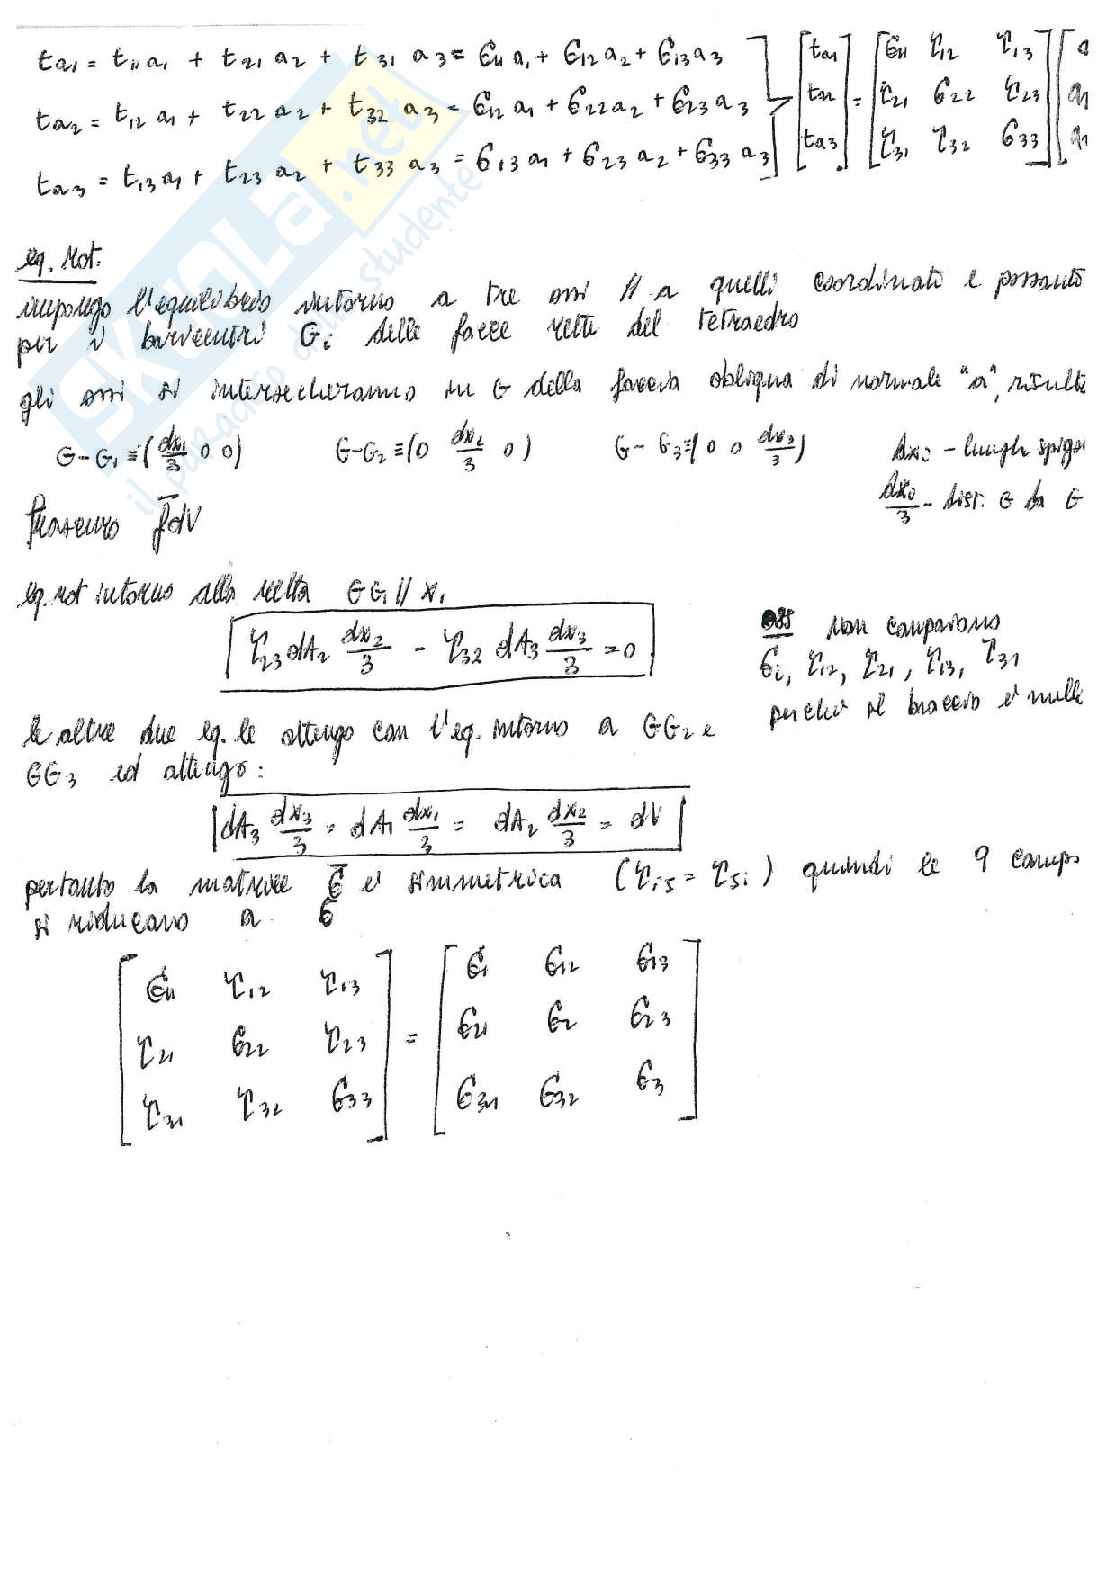 ta1 = t11 a1 + t21 a2 + t31 a3 = σ11 a1 + σ12 a2 + σ13 a3
ta2 = t12 a1 + t22 a2 + t32 a3 = σ12 a1 + σ22 a2 + σ23 a3
ta3 = t13 a1 + t23 a2 + t33 a3 = σ13 a1 + σ23 a2 + σ33 a3
[ta1 ta2 ta3] = [σ11 τ12 τ13
τ21 σ22 τ23
τ31 τ32 σ33]
eq. Rot:
impongo l'equilibrio intorno a tre assi // a quelli coordinati e passanti
per i baricentri Gi delle facce rette del tetraedro
gli assi si intersecheranno in G della faccia obliqua di normale "a", risulta
G-G1 ≡ (dx1/3 0 0) G-G2 ≡ (0 dx2/3 0) G-G3 ≡ (0 0 dx3/3) dxi - lungh spigoli
dxi/3 - dist. G da G
Trascuro F̄dV
eq. rot intorno alla retta GG1 // x1
τ23 dA2 dx2/3 - τ32 dA3 dx3/3 = 0
OSS non compaiono
σi, τ12, τ21, τ13, τ31
perché il braccio è nullo
le altre due eq. le ottengo con l'eq. intorno a GG2 e
GG3 ed ottengo:
dA3 dx3/3 = dA1 dx1/3 = dA2 dx2/3 = dV
pertanto la matrice σ̄ è simmetrica (τij = τji) quindi le 9 comp.
si riducono a 6
[σ11 τ12 τ13 = [σ1 σ12 σ13
τ21 σ22 τ23 σ21 σ2 σ23
τ31 τ32 σ33] σ31 σ32 σ3]
SKUOLA.net
il paradiso dello studente